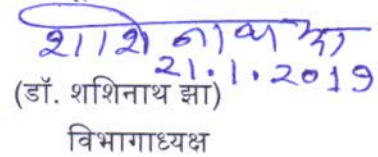 शशिनाथ झा
21.1.2019
(डॉ. शशिनाथ झा)
विभागाध्यक्ष